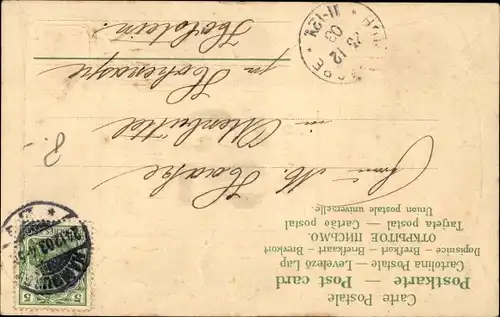 Carte Postale
Postkarte — Post card
Cartolina Postale — Levelező Lap
Dopisnice — Brefkort — Briefkaart — Brevkort
ОТКРЫТОЕ ПИСЬМО.
Tarjeta postal — Cartão postal
Union postale universelle.
Frau M. Haacke
in Ottenbüttel
pr Hohenaspe
Holstein.
23 12
03
11-12V
5 5
8.-